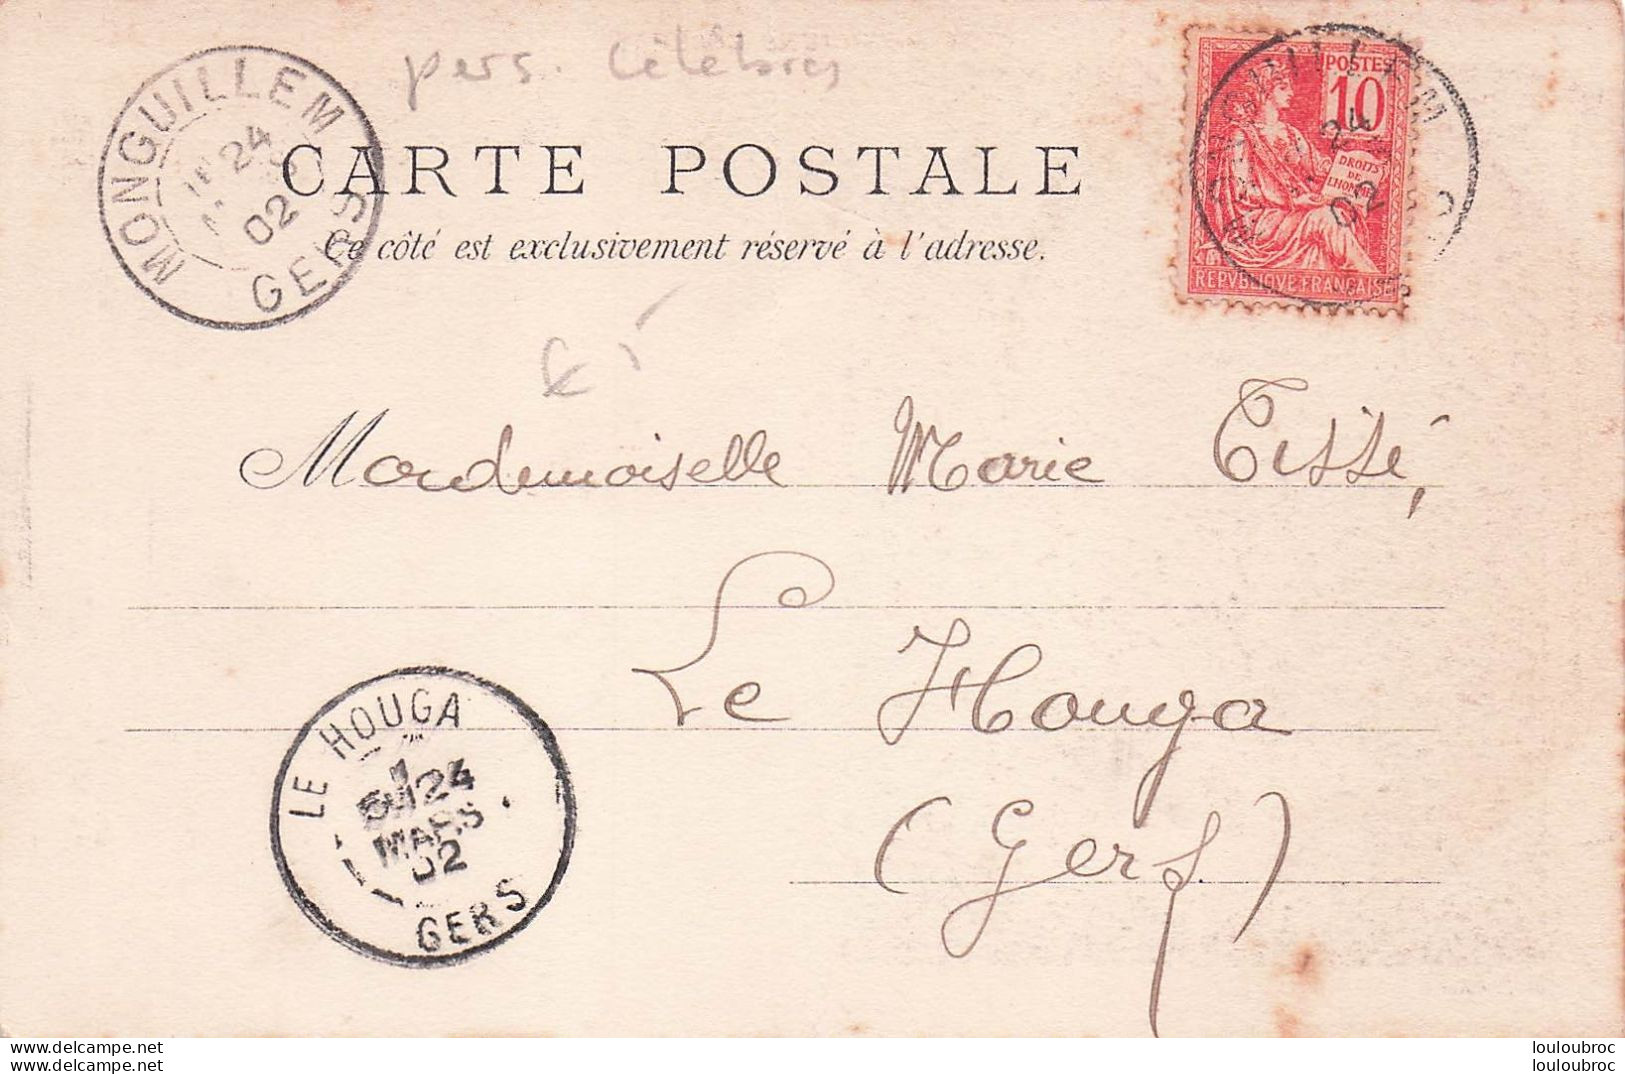 pers. Célèbres
MONGUILLEM
24
02
GERS
CARTE POSTALE
Ce côté est exclusivement réservé à l'adresse.
POSTES
10
DROITS
DE
L'HOMME
REPVBLIQUE FRANÇAISE
24
02
Mademoiselle Marie Tissé,
Le Houga
(Gers)
LE HOUGA
24
MARS
02
GERS
www.delcampe.net
www.delcampe.net
louloubroc
louloubroc